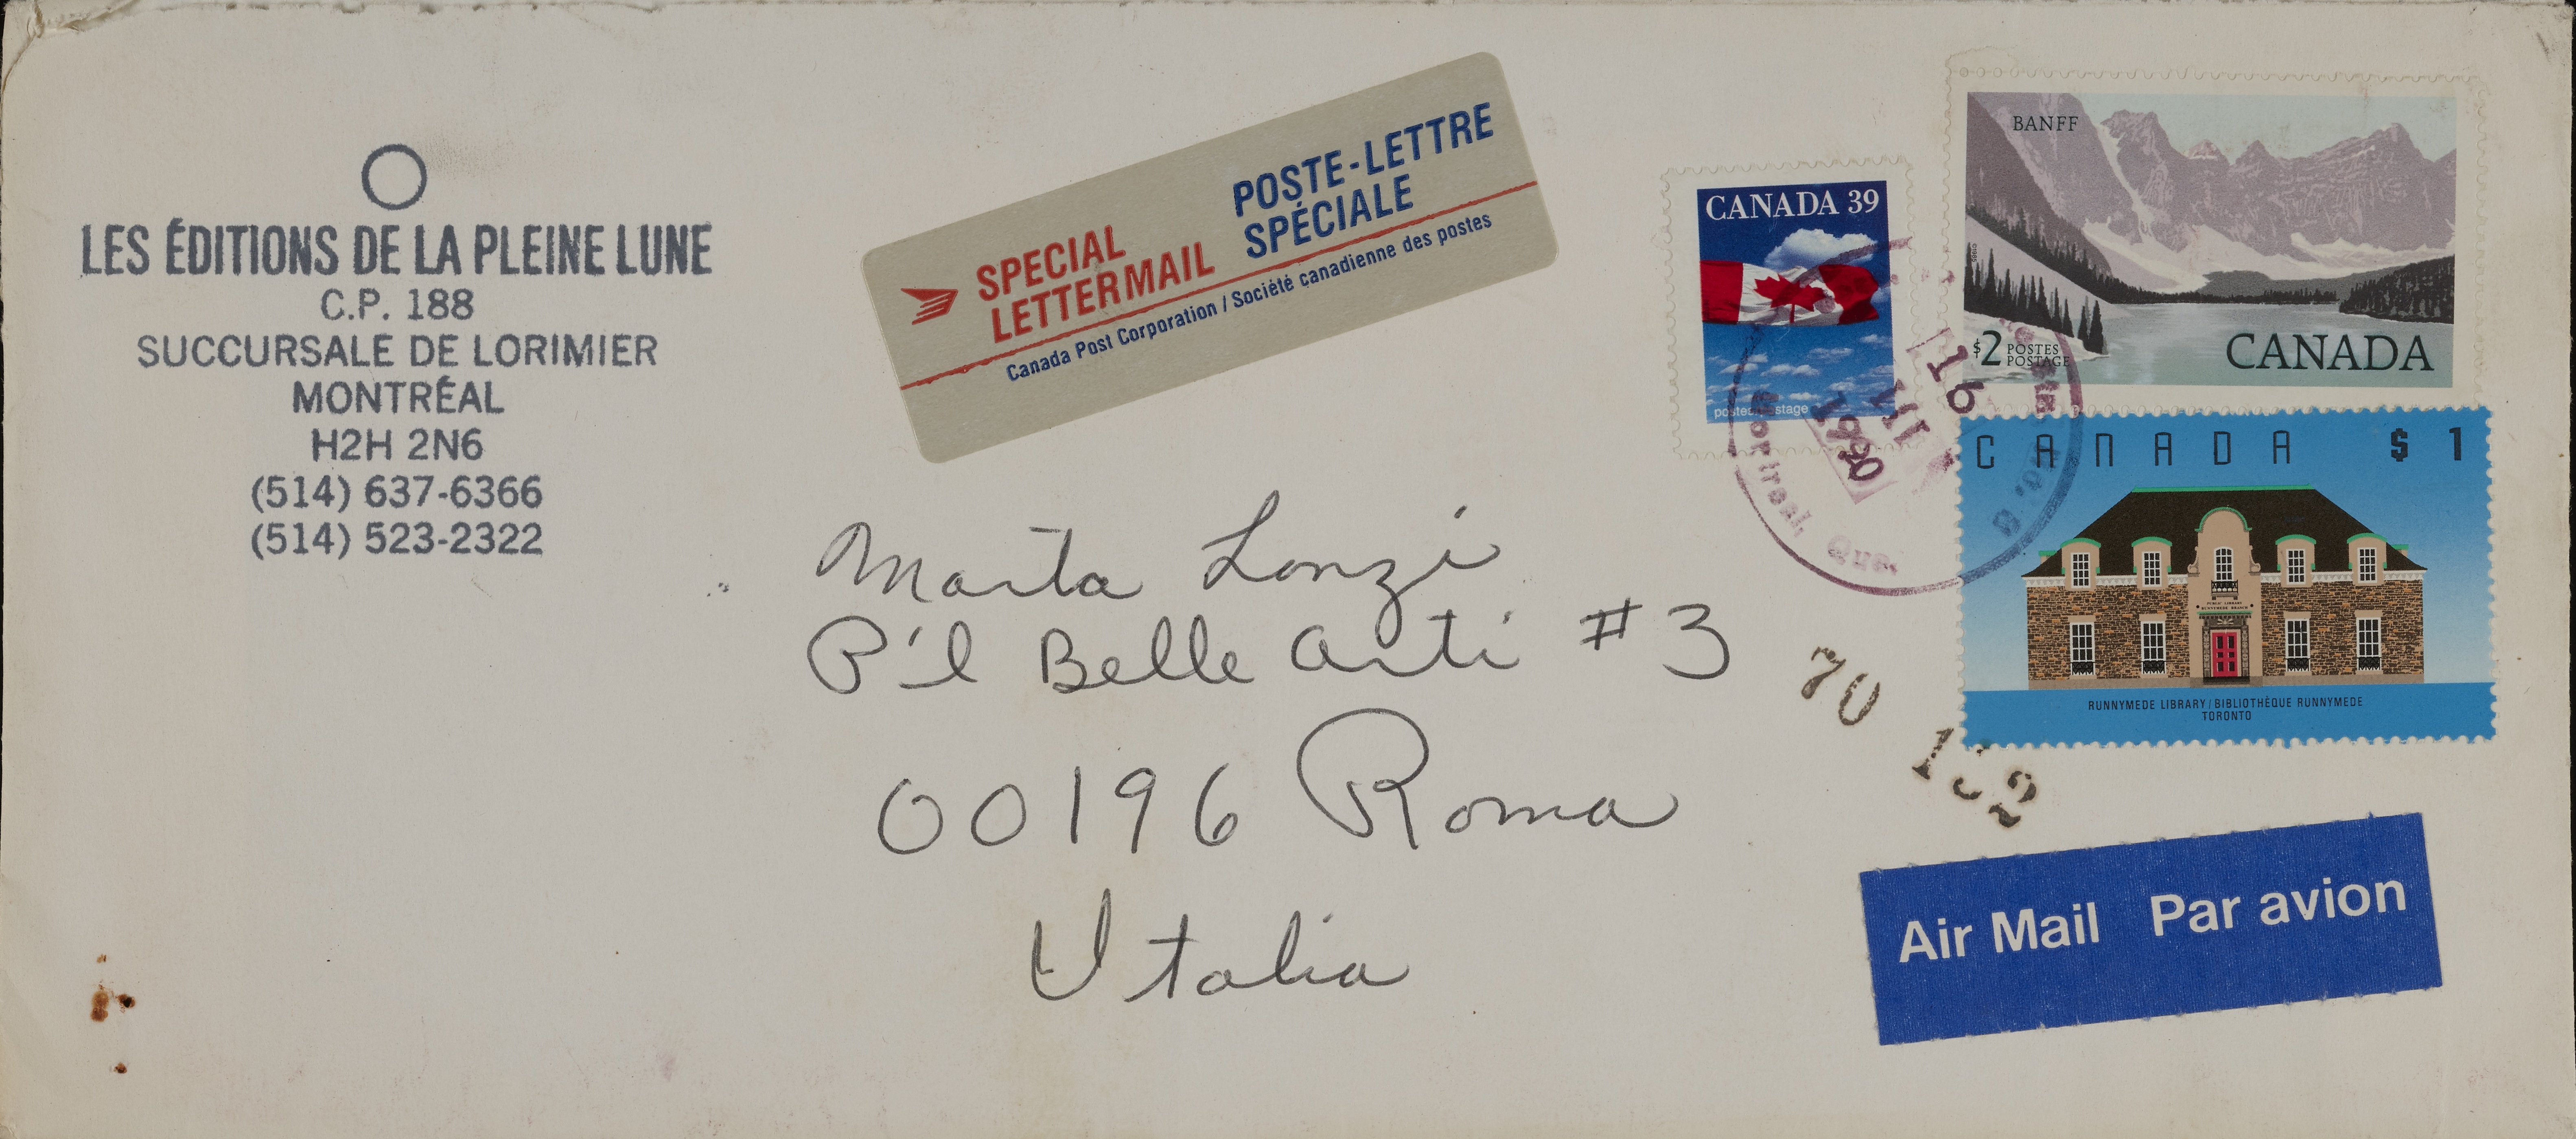 LES ÉDITIONS DE LA PLEINE LUNE
C.P. 188
SUCCURSALE DE LORIMIER
MONTRÉAL
H2H 2N6
(514) 637-6366
(514) 523-2322
SPECIAL
LETTERMAIL
POSTE-LETTRE
SPÉCIALE
Canada Post Corporation / Société canadienne des postes
CANADA 39
postes postage
BANFF
$2 POSTES
POSTAGE
CANADA
16
III
1990
Montreal, Que.
CANADA $1
PUBLIC LIBRARY
RUNNYMEDE BRANCH
RUNNYMEDE LIBRARY / BIBLIOTHÈQUE RUNNYMEDE
TORONTO
Marta Lonzi
P'l Belle Arti #3
00196 Roma
Italia
70
152
Air Mail Par avion